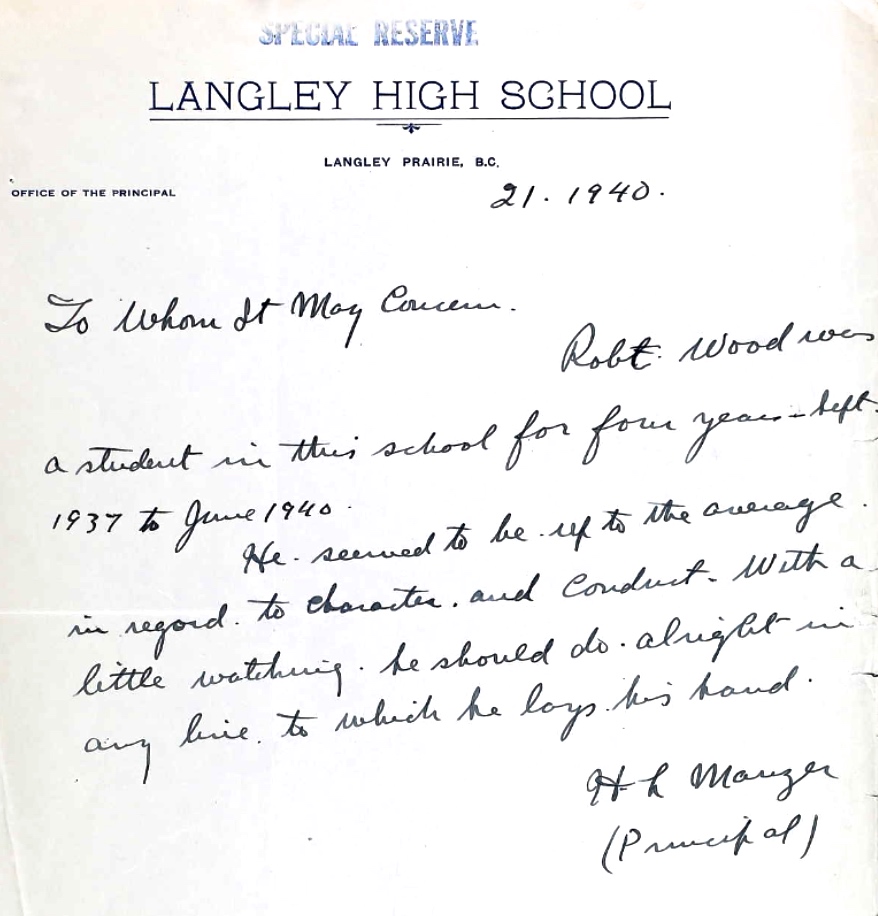 SPECIAL RESERVE
LANGLEY HIGH SCHOOL
LANGLEY PRAIRIE, B.C.
OFFICE OF THE PRINCIPAL
21. 1940.
To Whom It May Concern.
Robt. Wood was
a student in this school for four years - Sept.
1937 to June 1940.
He seemed to be up to the average
in regard to character and conduct. With a
little watching he should do alright in
any line to which he lays his hand.
H L Manzer
(Principal)